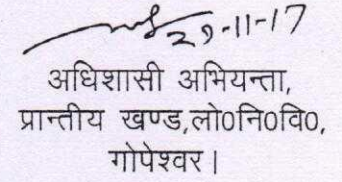 29-11-17
अधिशासी अभियन्ता,
प्रान्तीय खण्ड,लो0नि0वि0,
गोपेश्वर।